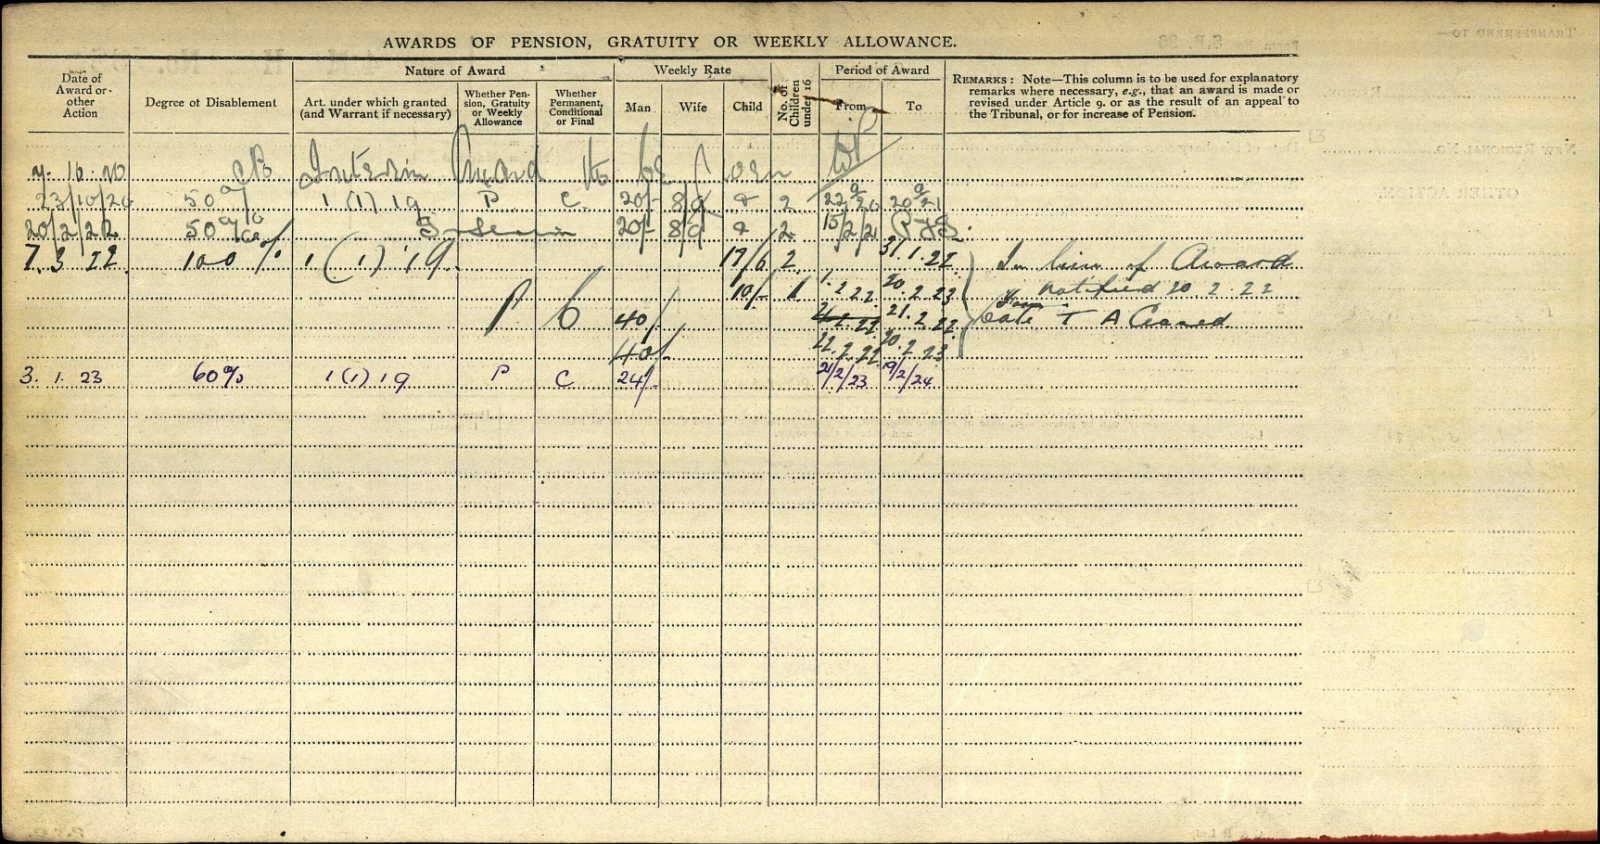 AWARDS OF PENSION, GRATUITY OR WEEKLY ALLOWANCE.
Date of Award or other Action
Degree of Disablement
Nature of Award
Art. under which granted (and Warrant if necessary)
Whether Pension, Gratuity or Weekly Allowance
Whether Permanent, Conditional or Final
Weekly Rate
Man
Wife
Child
No. of Children under 16
Period of Award
From
To
REMARKS: Note—This column is to be used for explanatory
remarks where necessary, e.g., that an award is made or
revised under Article 9. or as the result of an appeal to
the Tribunal, or for increase of Pension.
Interim Award to be
23/10/20 50% 1 (1) 19 P C 20/- 2 20/9/21
20/2/22 50% 20/- 2 15/2/21
7. 3 22 100% 1 (1) 19. 17/6 2 31.1.22 In lieu of Award
10/- 1 1.2.22. 20.2.23 notified 20.2.22
P C 40/- 21.2.22 from date T A Ceased
40/- 22.2.22 20.2.23
3. 1. 23 60% 1 (1) 19 P C 24/- 21/2/23 19/2/24
TRANSFERRED TO:—
NEW REGIONAL No.
OTHER ACTION.